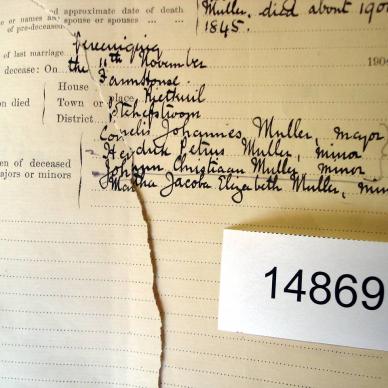 d approximate date of death
Muller, died about 190
e or names an spouse or spouses ... ...
of pre-deceased
1845.
of last marriage
Vereeniging
decease: On the 11th November 190
House Farmhouse.
on died Town or place Rietkuil
District Potchefstroom
Cornelis Johannes Muller, major
en of deceased Hendrik Petrus Muller, minor
ajors or minors Johann Christiaan Muller, minor
Martha Jacoba Elizabeth Muller, min
14869